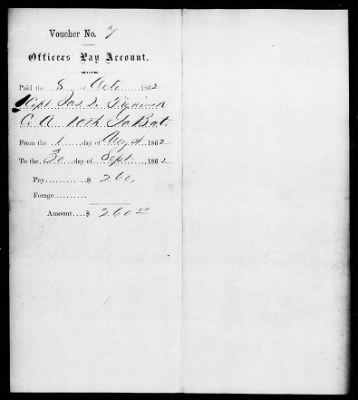 Voucher No. 7
Officers Pay Account.
Paid the 8 of Octo 1862
Capt Jas D.
Co A 10th Bat.
From the 1 day of August 1862
To the 30 day of Sept 1862
Pay $ 260,
Forage
Amount $ 260 00